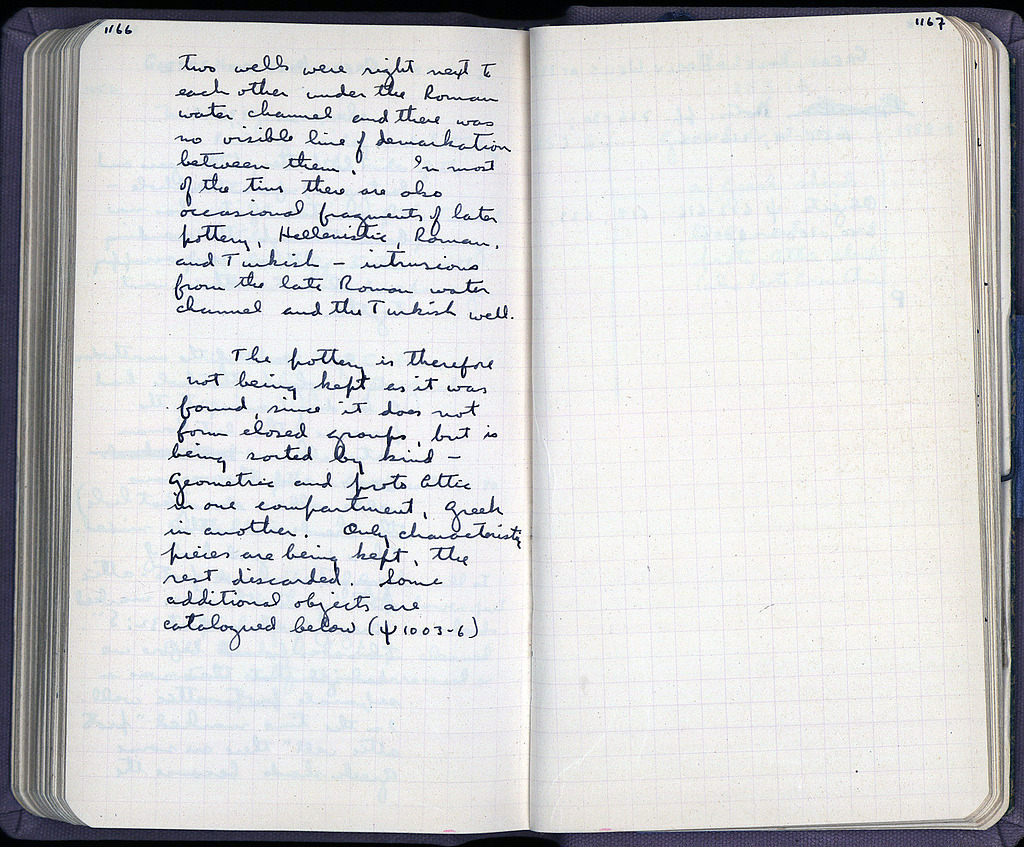 1166
two wells were right next to
each other under the Roman
water channel and there was
no visible line of demarkation
between them. In most
of the tins there are also
occasional fragments of later
pottery, Hellenistic, Roman,
and Turkish – intrusions
from the late Roman water
channel and the Turkish well.
The pottery is therefore
not being kept as it was
found, since it does not
form closed groups, but is
being sorted by kind –
Geometric and proto Attic
in one compartment, Greek
in another. Only characteristic
pieces are being kept, the
rest discarded. Some
additional objects are
catalogued below (ψ 1003-6)
1167